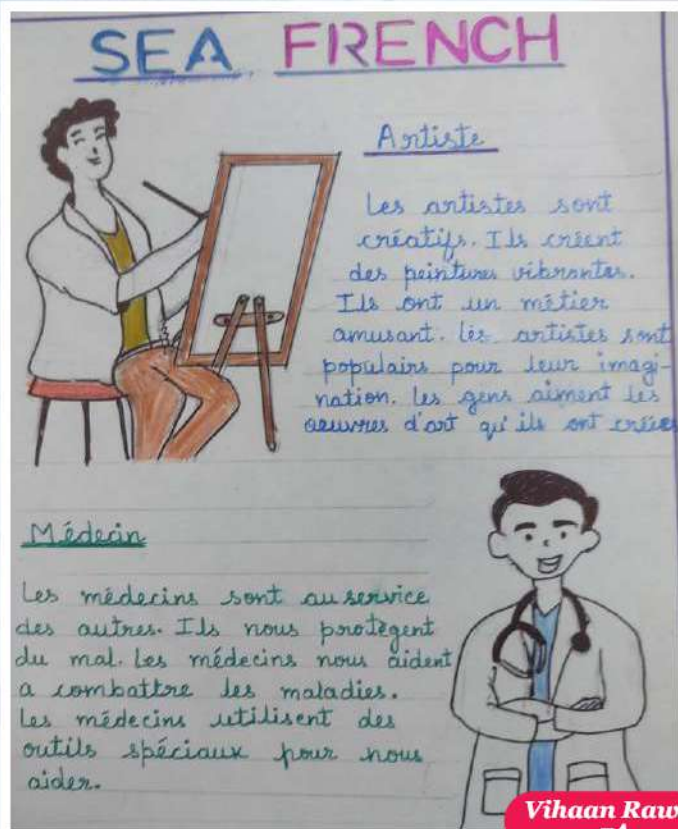 SEA FRENCH
Artiste
Les artistes sont
créatifs. Ils créent
des peintures vibrantes.
Ils ont un métier
amusant. Les artistes sont
populairs pour leur imagi-
nation. Les gens aiment les
oeuvres d'art qu'ils ont créées
Médecin
Les médecins sont au service
des autres. Ils nous protègent
du mal. Les médecins nous aident
a combattre les maladies.
Les médecins utilisent des
outils spéciaux pour nous
aider.
Vihaan Raw